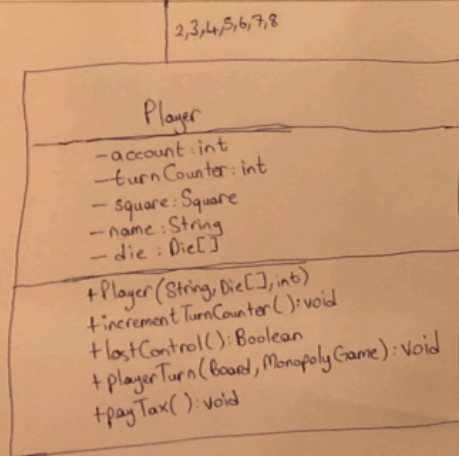 2,3,4,5,6,7,8
Player
-account:int
-turnCounter:int
-square:Square
-name:String
-die:Die[]
+Player(String,Die[],int)
+incrementTurnCounter():void
+lostControl():Boolean
+playerTurn(Board,MonopolyGame):void
+payTax():void